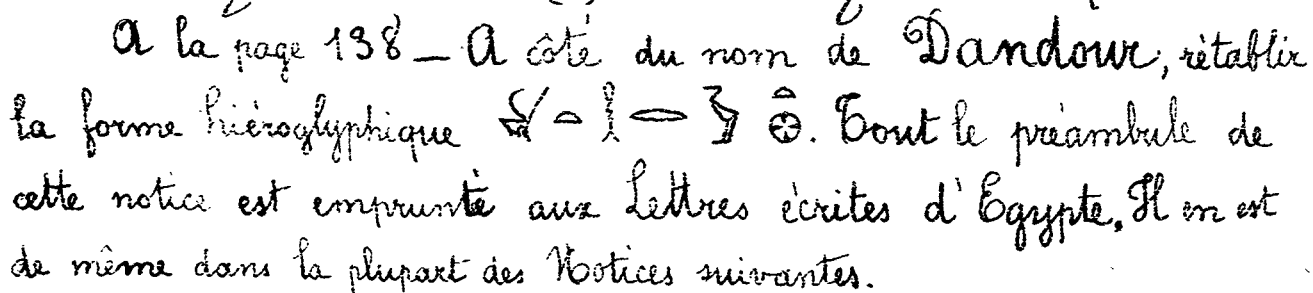 A la page 138 — A côté du nom de Dandour, rétablir
la forme hiéroglyphique . Tout le préambule de
cette notice est emprunté aux Lettres écrites d'Egypte. Il en est
de même dans la plupart des Notices suivantes.